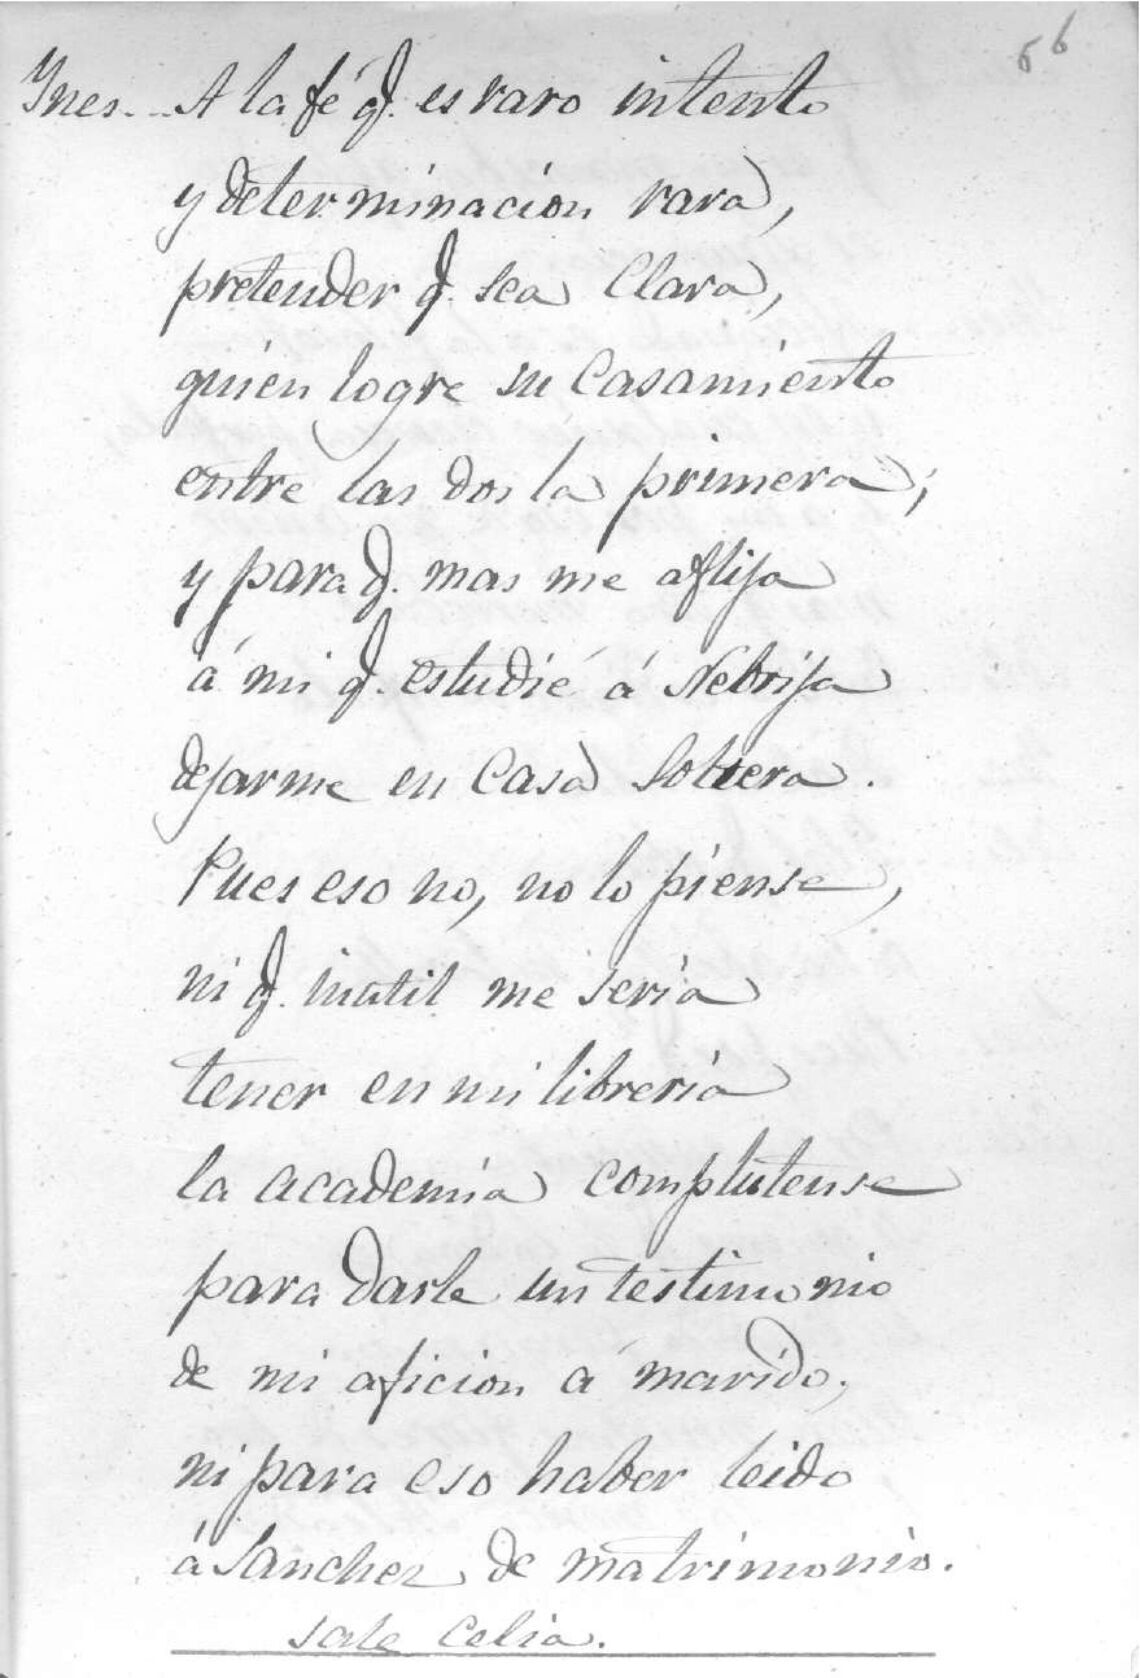 56
Ynes... A la fé q. es raro intento
y determinacion rara,
pretender q. sea Clara,
quien logre su Casamiento
entre las dos la primera;
y para q. mas me aflija
á mi q. estudié á Nebrija
dejarme en Casa Soltera.
Pues eso no, no lo piense,
ni q. inutil me seria
tener en mi libreria
la academia complutense
para darle un testimonio
de mi aficion á marido,
ni para eso haber leido
á Sanchez de matrimonio.
sale Celia.